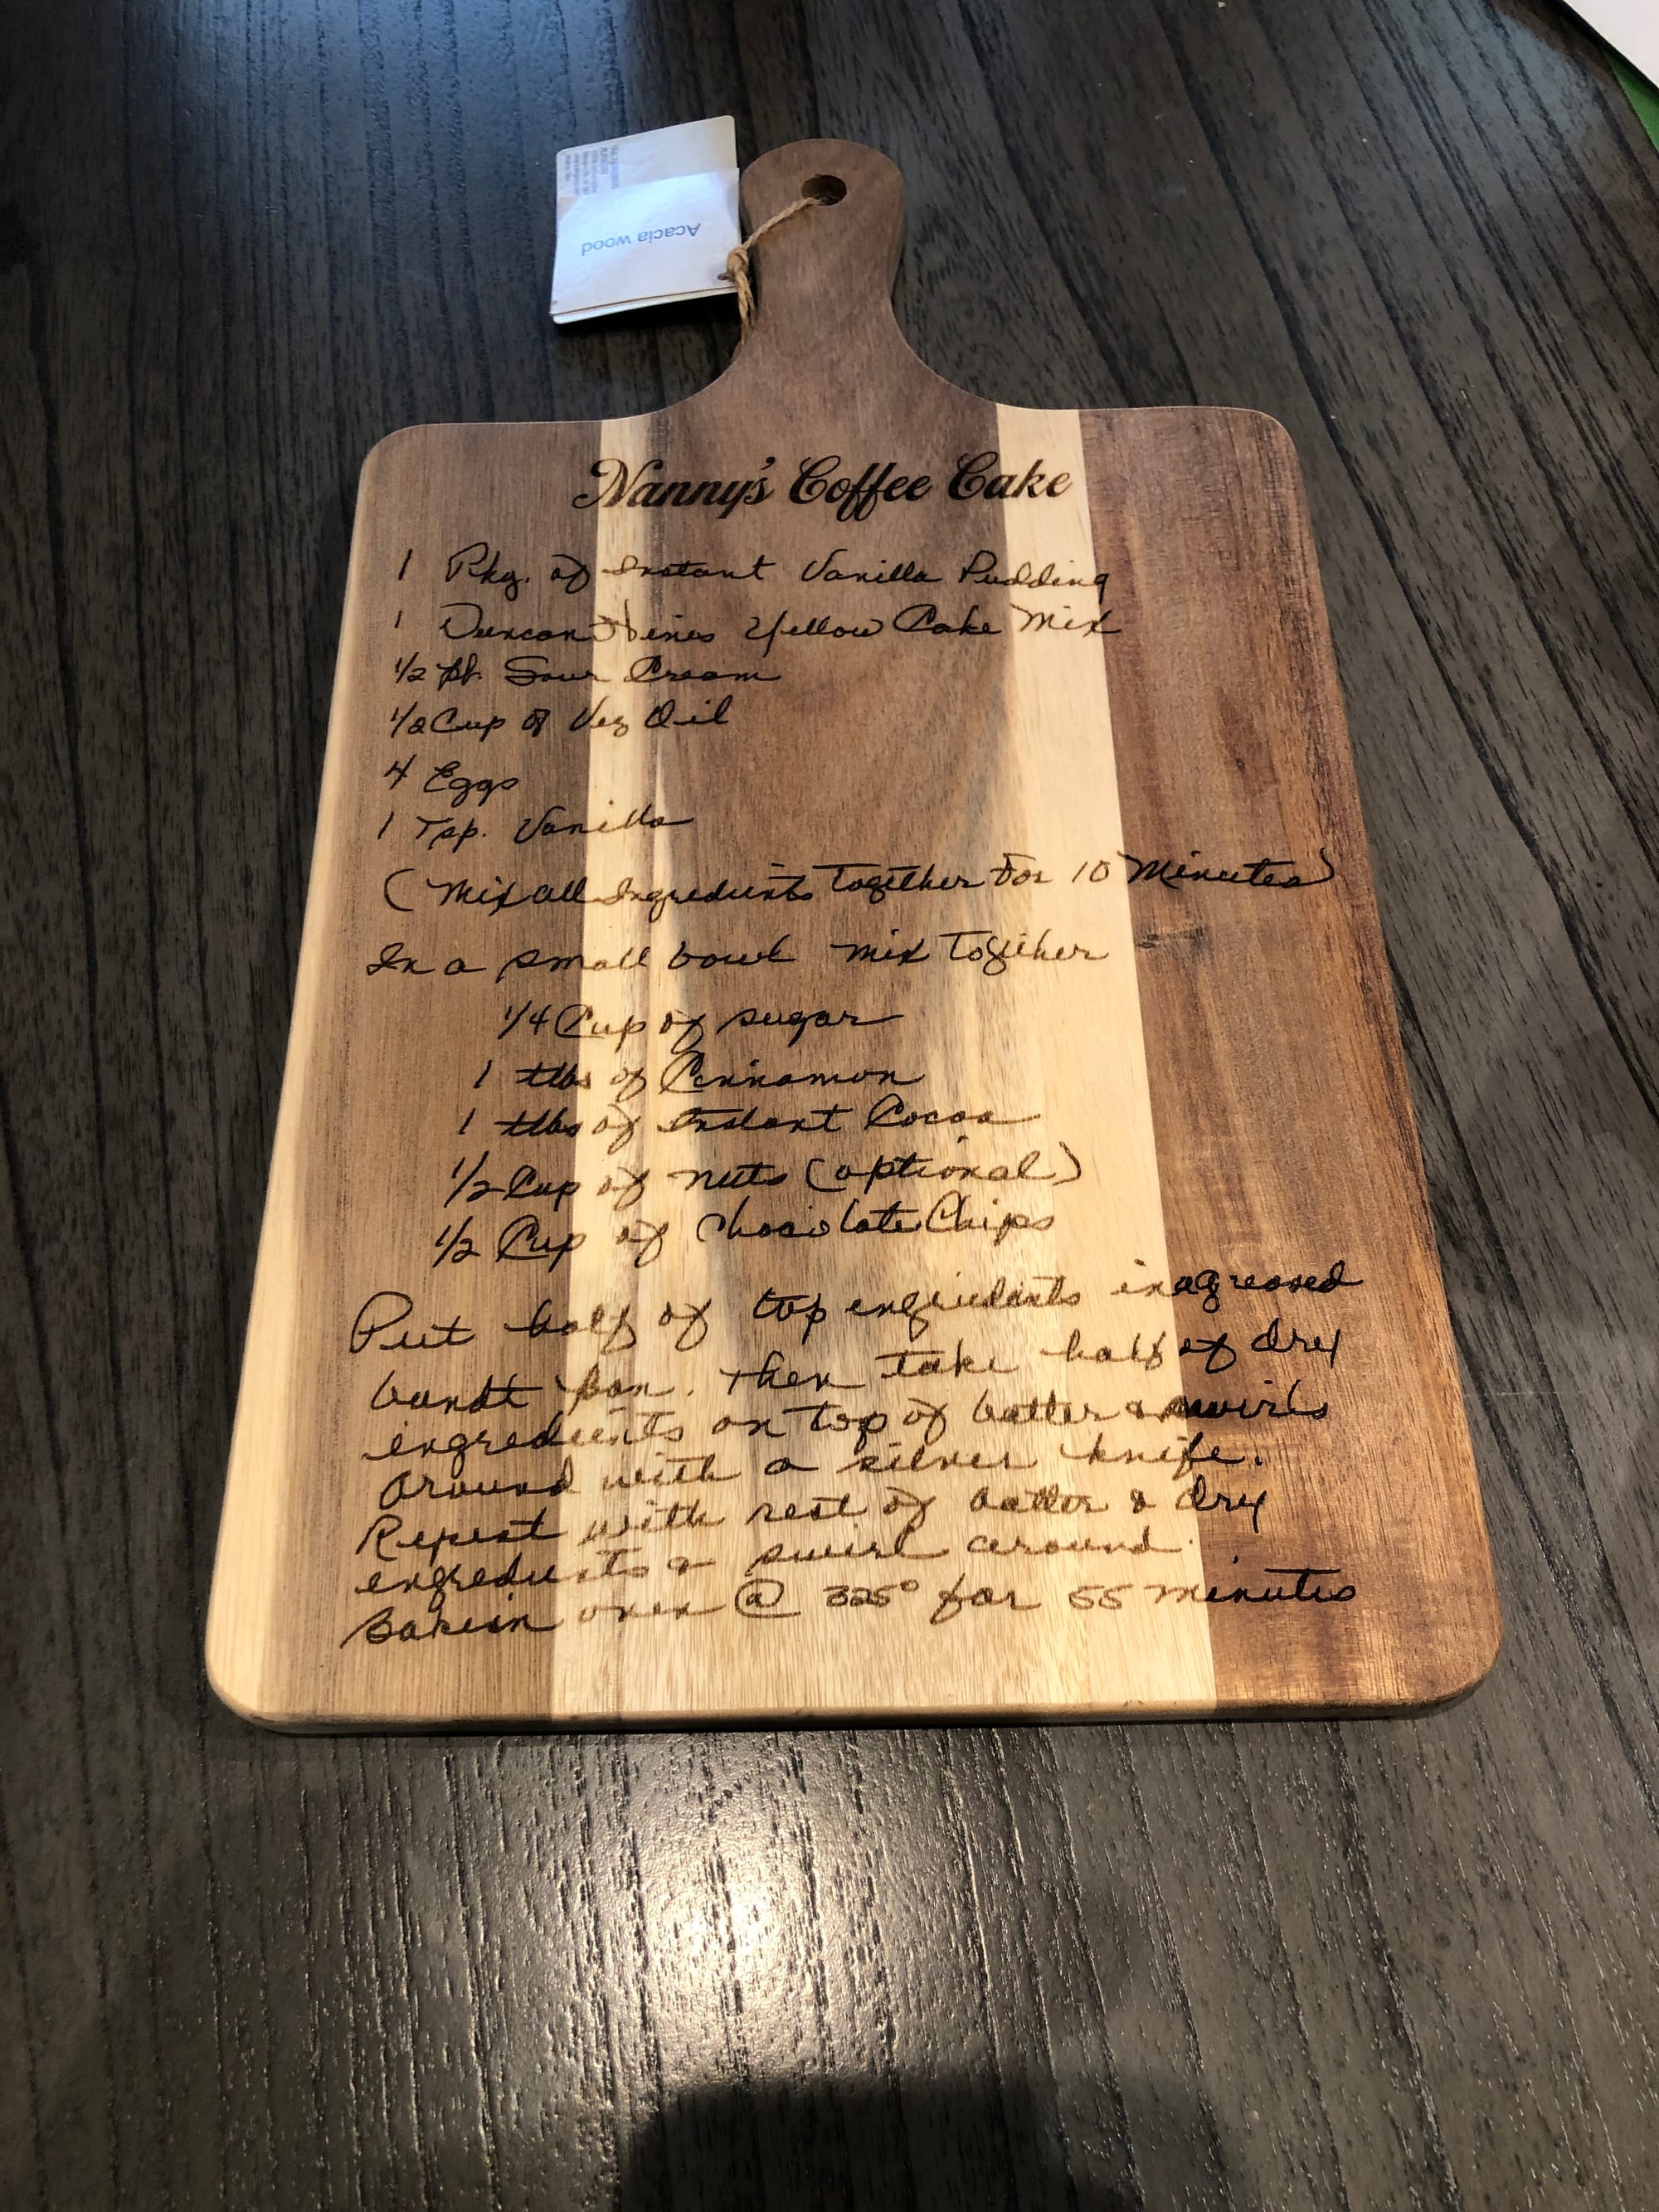 Acacia wood
Nanny's Coffee Cake
1 Pkg. of Instant Vanilla Pudding
1 Duncan Hines Yellow Cake Mix
1/2 pt. Sour Cream
1/2 Cup of Veg Oil
4 Eggs
1 Tsp. Vanilla
(Mix all Ingredients Together For 10 Minutes)
In a small bowl mix Together
1/4 Cup of sugar
1 tlbs of Cinnamon
1 tlbs of Instant Cocoa
1/2 Cup of nuts (optional)
1/2 Cup of Chocolate Chips
Put half of top engredients in a greased
bundt pan. Then take half of dry
engredients on top of batter & swirls
around with a silver knife.
Repeat with rest of batter & dry
engredients & swirl around.
Bake in oven @ 325° for 55 minutes